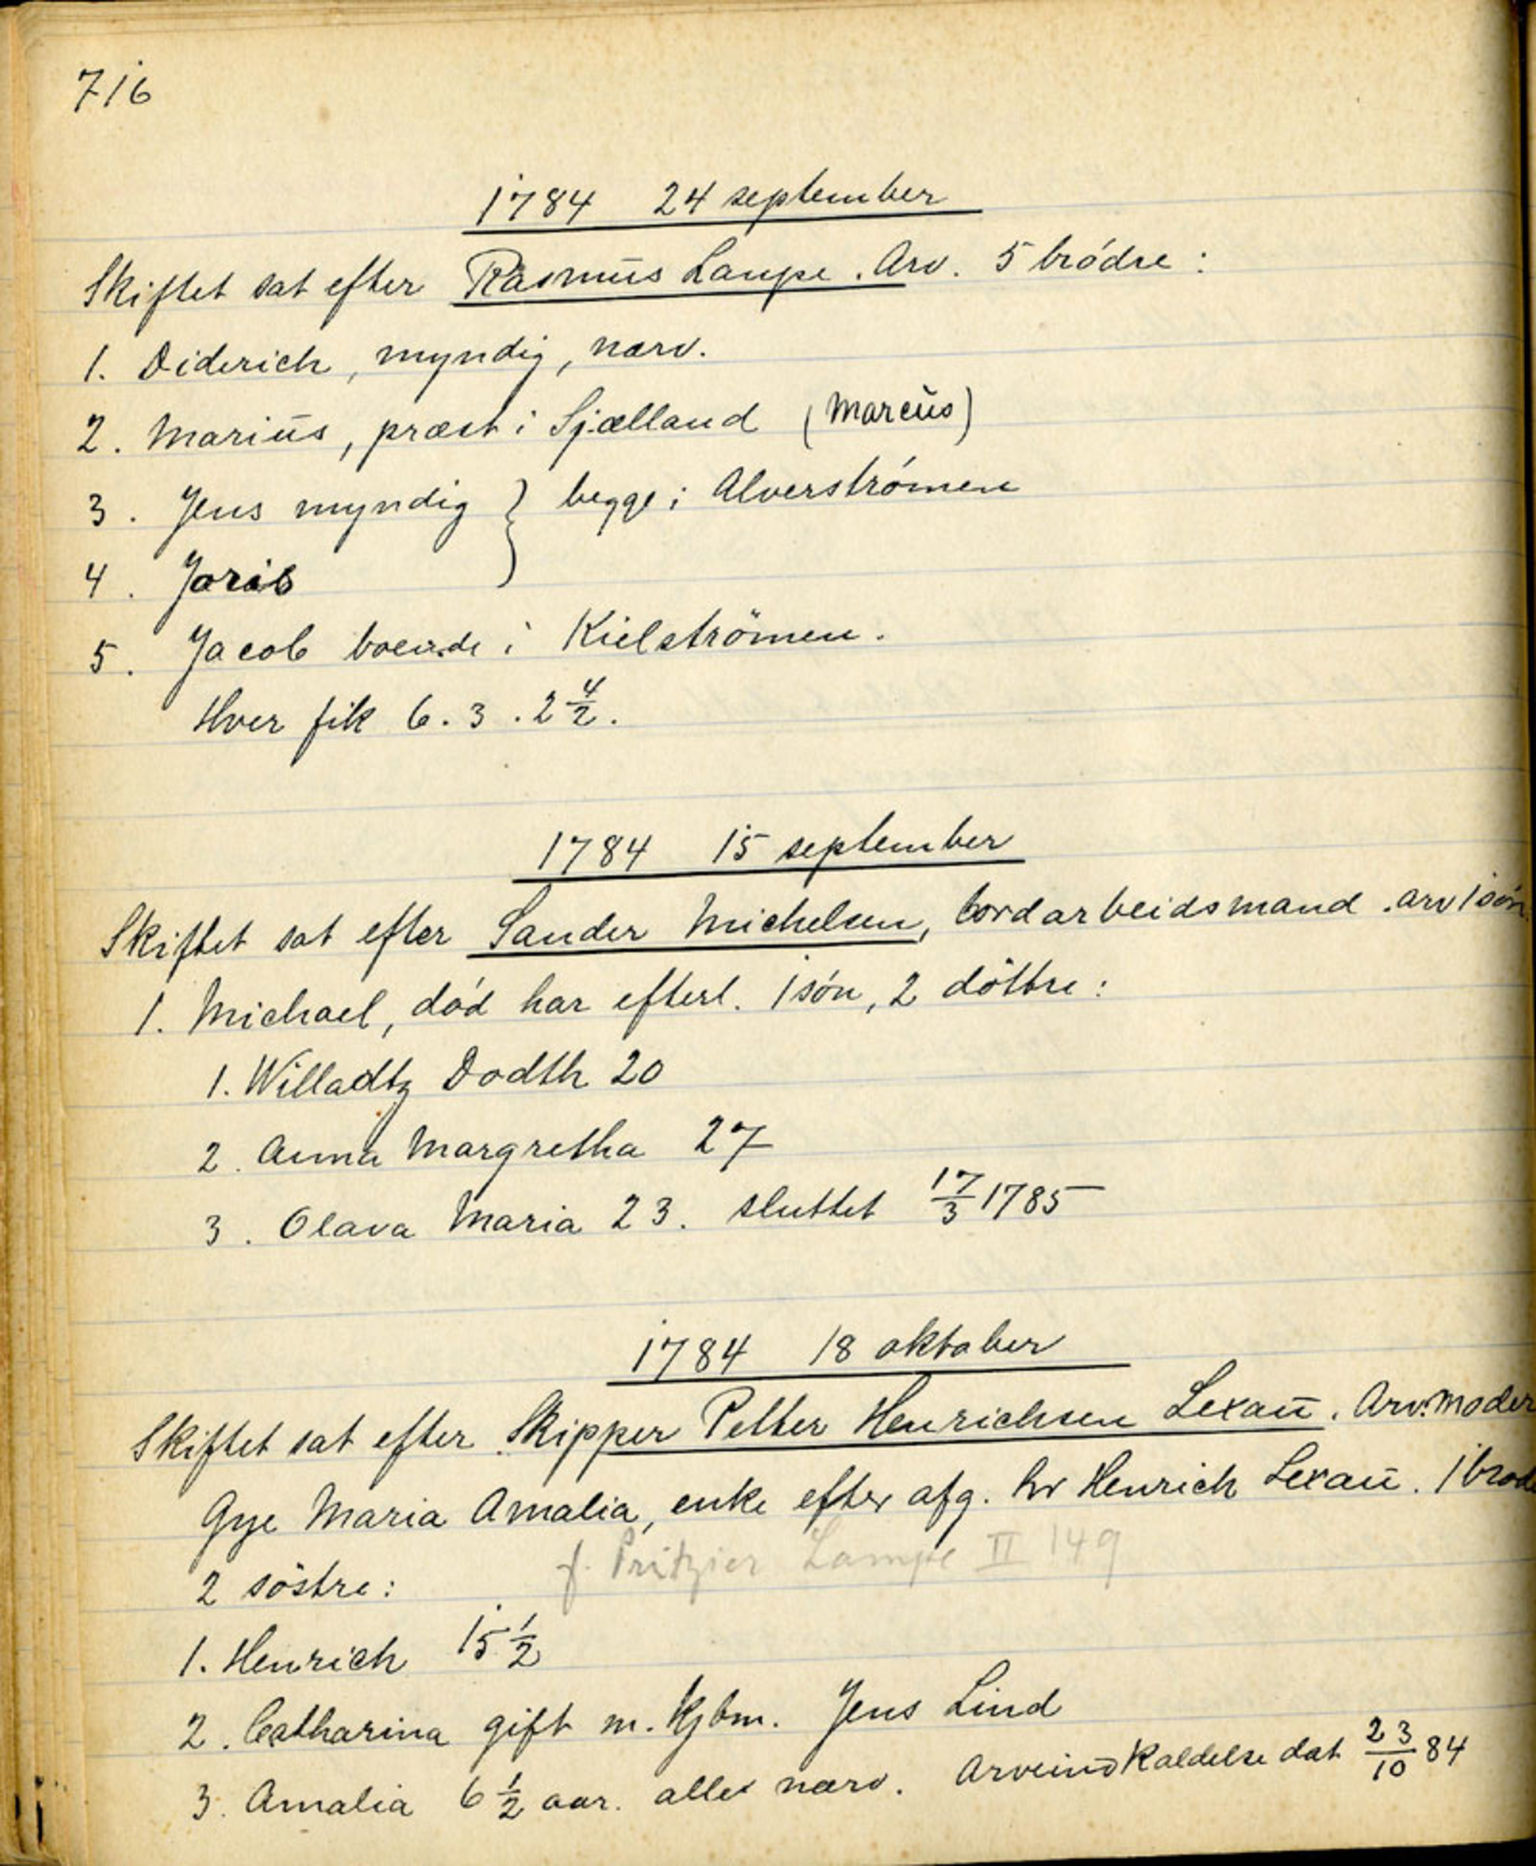 716
1784 24 september
Skiftet sat efter Rasmus Lampe. Arv. 5 brødre:
1. Diderich, myndig, nærv.
2. Marius, præst i Sjælland (Marcus)
3. Jens myndig } begge i Alverstrømen
4. Joris
5. Jacob boende i Kielströmen.
Hver fik 6. 3. 2 4/2.
1784 15 september
Skiftet sat efter Sander Michelsen, bordarbeidsmand. arv 1 søn
1. Michael, död har efterl. 1 søn, 2 döttre:
1. Willadtz Dodth 20
2. Anna Margretha 27
3. Olava Maria 23. sluttet 17/3 1785
1784 18 oktober
Skiftet sat efter Skipper Petter Henrichsen Lexau. Arv. Moder
Gye Maria Amalia, enke efter afg. hr Henrich Lexau. 1 brod
f. Pritzier Lampe II 149
2 söstre:
1. Henrich 15 1/2
2. Catharina gift m. Kjbm. Jens Lind
3. Amalia 6 1/2 aar. alle nærv. Arveindkaldelse dat 23/10 84